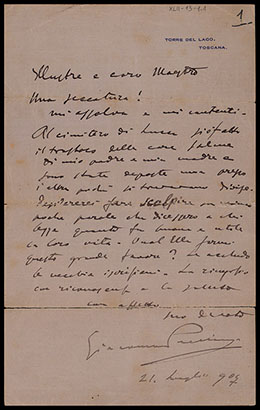 XLII-13-1.1
1
TORRE DEL LAGO,
TOSCANA.
Illustre e caro Maestro
Una seccatura!
mi assolva e mi contenti.
Al cimitero di Lucca fu fatto
il trasloco delle care salme
di mio padre e mia madre e
sono state deposte una presso
l'altra poichè si trovavano divise.
Desidererei fare scolpire in marmo
poche parole che dicessero a chi
legge quanto fu amore e utile
la loro vita. Vuol Ella farmi
questo grande favore? Le accludo
le vecchie iscrizioni. La ringrazio
con riconoscenza e la saluto
con affetto
Suo devoto
Giacomo Puccini
21. luglio 905